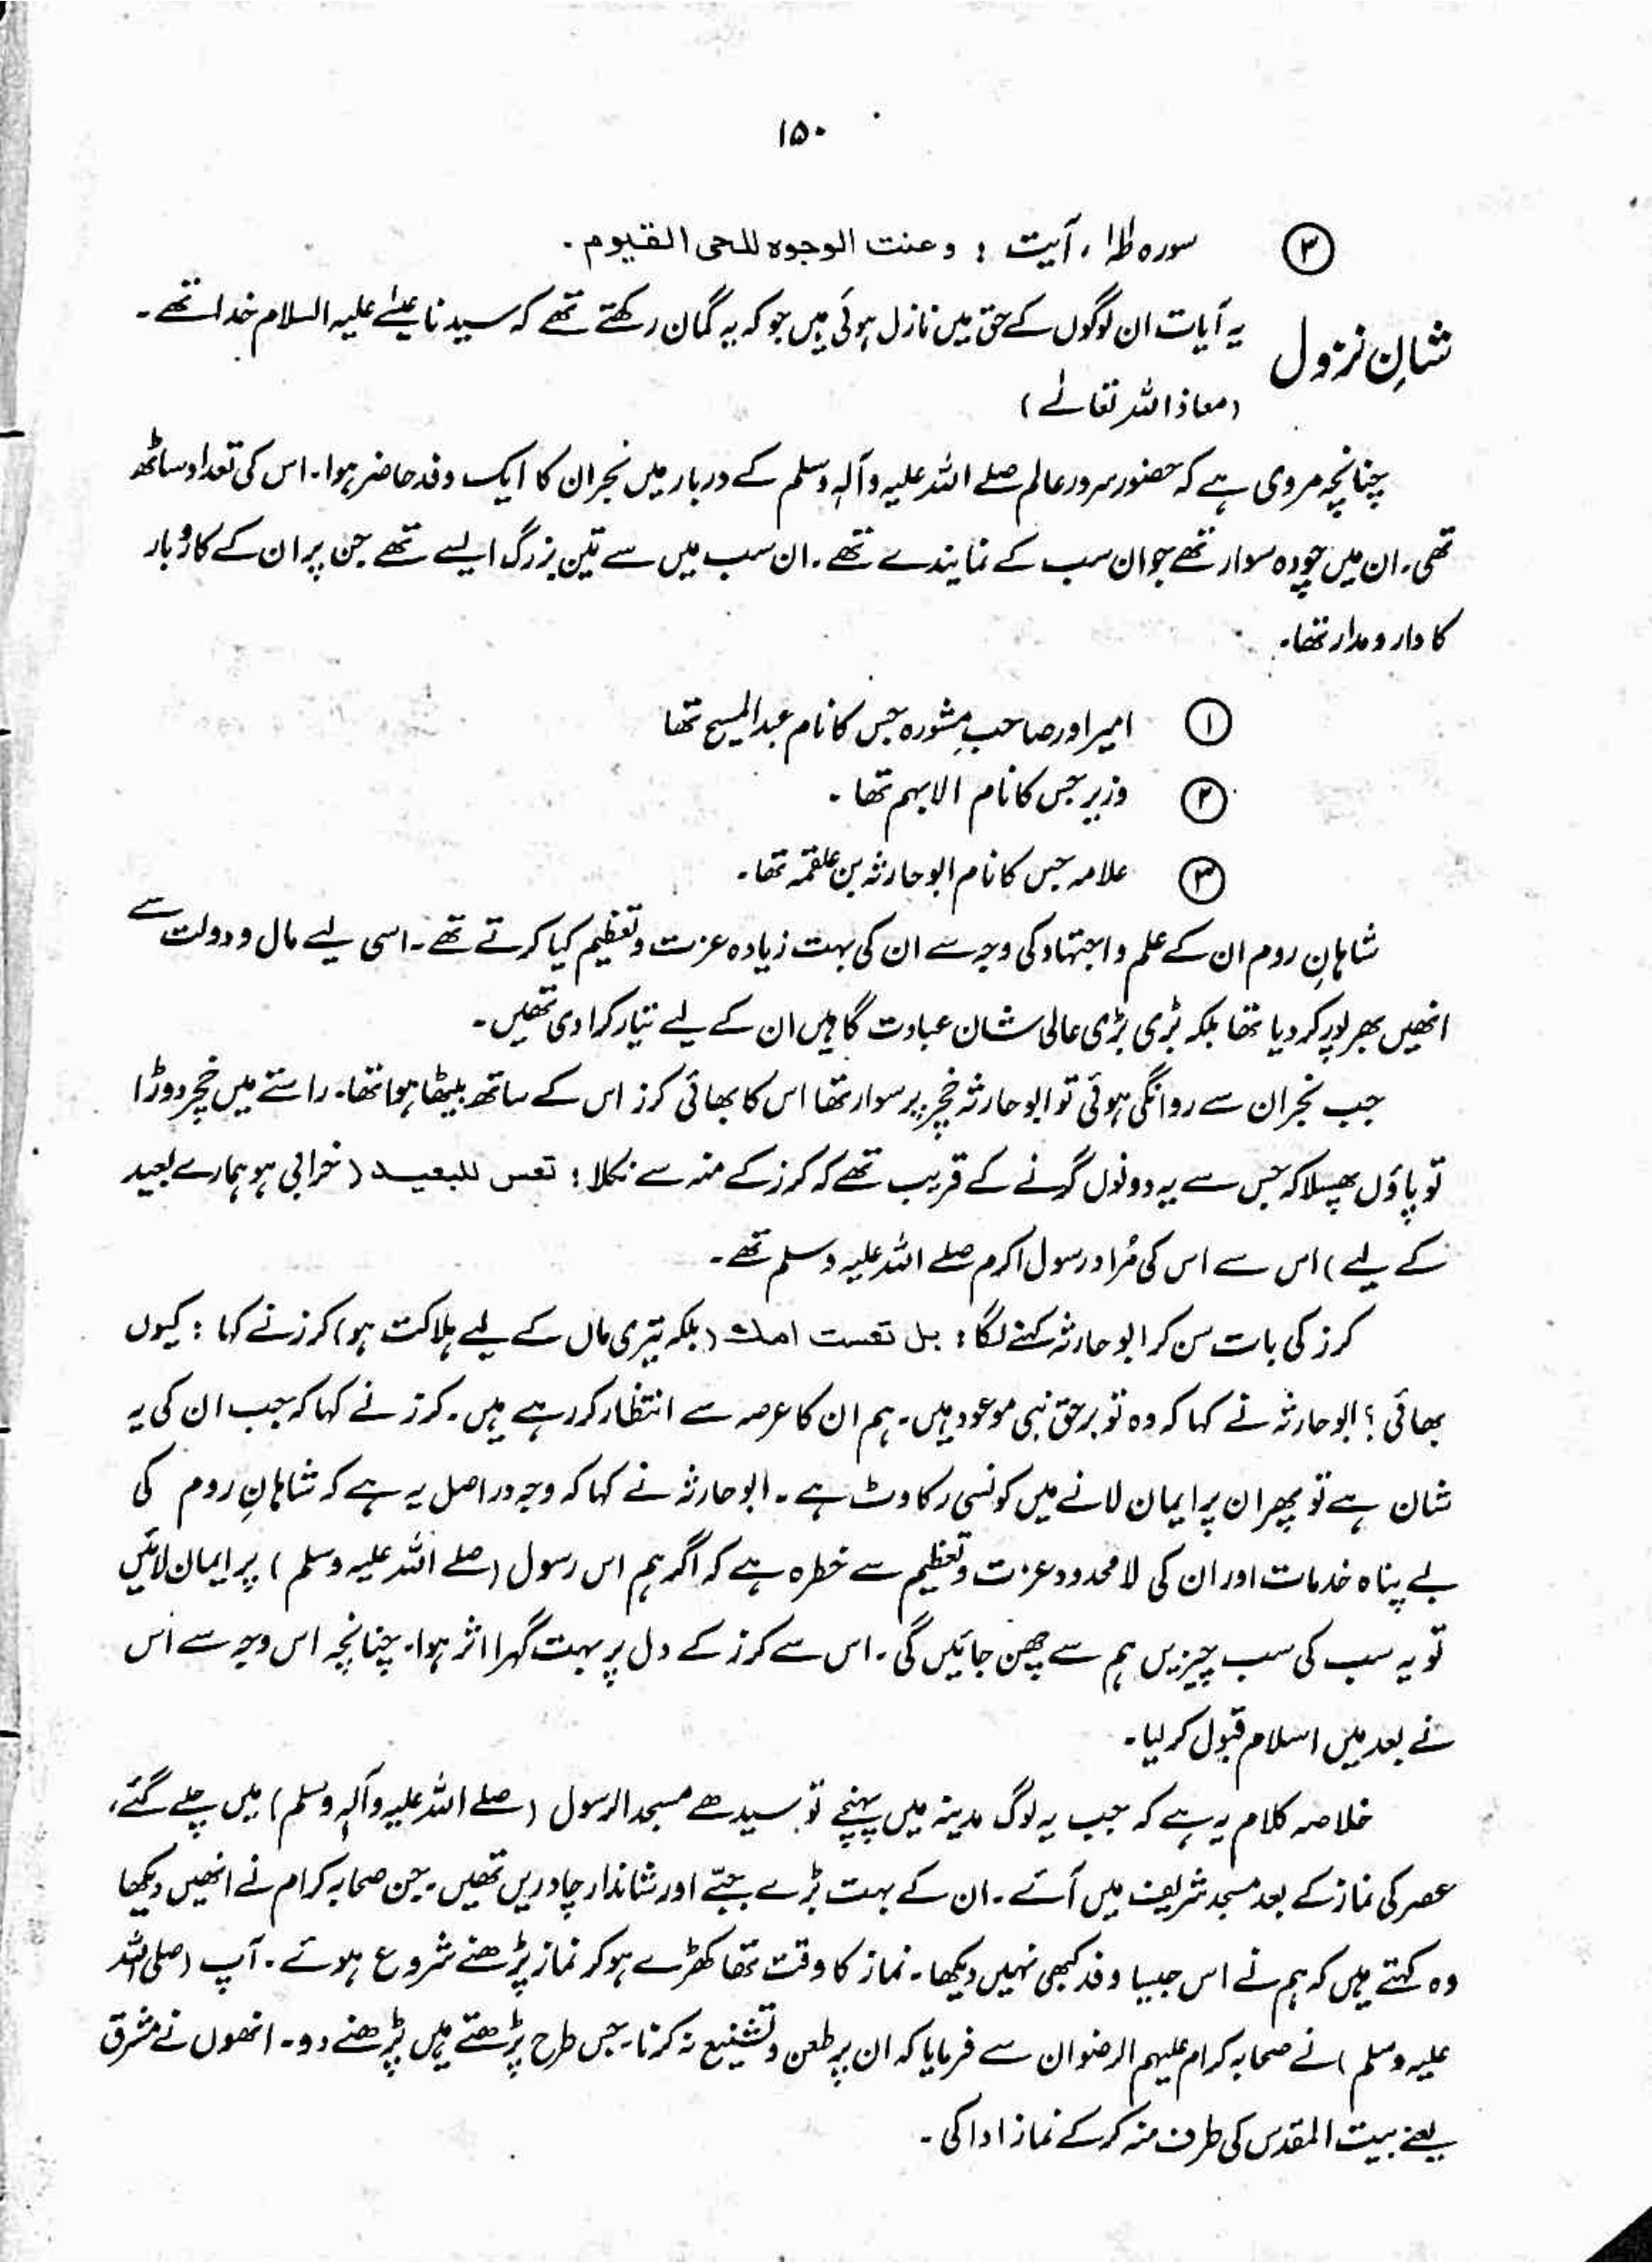 ۱۵۰
۳ سورہ طٰہٰ، آیت : وعنت الوجوہ للحی القیوم ۔
شانِ نزول یہ آیات ان لوگوں کے حق میں نازل ہوئی ہیں جو کہ یہ گمان رکھتے تھے کہ سیدنا عیسٰے علیہ السلام خدا تھے۔
(معاذ اللہ تعالٰے)
چنانچہ مروی ہے کہ حضور سرور عالم صلے اللہ علیہ وآلہٖ وسلم کے دربار میں نجران کا ایک وفد حاضر ہوا۔ اس کی تعداد ساٹھ
تھی۔ ان میں چودہ سوار تھے جو ان سب کے نمایندے تھے۔ ان سب میں سے تین بزرگ ایسے تھے جن پر ان کے کاروبار
کا دار و مدار تھا۔
۱ امیر اور صاحبِ مشورہ جس کا نام عبدالمسیح تھا
۲ وزیر جس کا نام الابہم تھا ۔
۳ علامہ جس کا نام ابوحارثہ بن علقمہ تھا۔
شاہانِ روم ان کے علم و اجتہاد کی وجہ سے ان کی بہت زیادہ عزت و تعظیم کیا کرتے تھے۔ اسی لیے مال و دولت سے
انھیں بھرپور کر دیا تھا بلکہ بڑی بڑی عالی شان عبادت گاہیں ان کے لیے تیار کرا دی تھیں۔
جب نجران سے روانگی ہوئی تو ابوحارثہ خچر پر سوار تھا اس کا بھائی کرز اس کے ساتھ بیٹھا ہوا تھا۔ راستے میں خچر دوڑا
تو پاؤں پھسلا کہ جس سے یہ دونوں گرنے کے قریب تھے کہ کرز کے منہ سے نکلا : تعس للبعید (خرابی ہو ہمارے بعید
کے لیے) اس سے اس کی مُراد رسول اکرم صلے اللہ علیہ وسلم تھے۔
کرز کی بات سن کر ابوحارثہ کہنے لگا : بل تعست امك (بلکہ تیری ماں کے لیے ہلاکت ہو) کرز نے کہا : کیوں
بھائی ؟ ابوحارثہ نے کہا کہ وہ تو برحق نبی موعود ہیں۔ ہم ان کا عرصہ سے انتظار کر رہے ہیں۔ کرز نے کہا کہ جب ان کی یہ
شان ہے تو پھر ان پر ایمان لانے میں کونسی رکاوٹ ہے۔ ابوحارثہ نے کہا کہ وجہ دراصل یہ ہے کہ شاہانِ روم کی
بے پناہ خدمات اور ان کی لامحدود عزت و تعظیم سے خطرہ ہے کہ اگر ہم اس رسول (صلے اللہ علیہ وسلم) پر ایمان لائیں
تو یہ سب کی سب چیزیں ہم سے چھن جائیں گی۔ اس سے کرز کے دل پر بہت گہرا اثر ہوا۔ چنانچہ اس وجہ سے اس
نے بعد میں اسلام قبول کر لیا۔
خلاصہ کلام یہ ہے کہ جب یہ لوگ مدینہ میں پہنچے تو سیدھے مسجد الرسول (صلے اللہ علیہ وآلہٖ وسلم) میں چلے گئے،
عصر کی نماز کے بعد مسجد شریف میں آئے۔ ان کے بہت بڑے جبّے اور شاندار چادریں تھیں۔ جن صحابہ کرام نے انھیں دیکھا
وہ کہتے ہیں کہ ہم نے اس جیسا وفد کبھی نہیں دیکھا۔ نماز کا وقت تھا کھڑے ہو کر نماز پڑھنے شروع ہوئے۔ آپ (صلی اللہ
علیہ وسلم) نے صحابہ کرام علیہم الرضوان سے فرمایا کہ ان پر طعن و تشنیع نہ کرنا۔ جس طرح پڑھتے ہیں پڑھنے دو۔ انھوں نے مشرق
یعنے بیت المقدس کی طرف منہ کر کے نماز ادا کی ۔